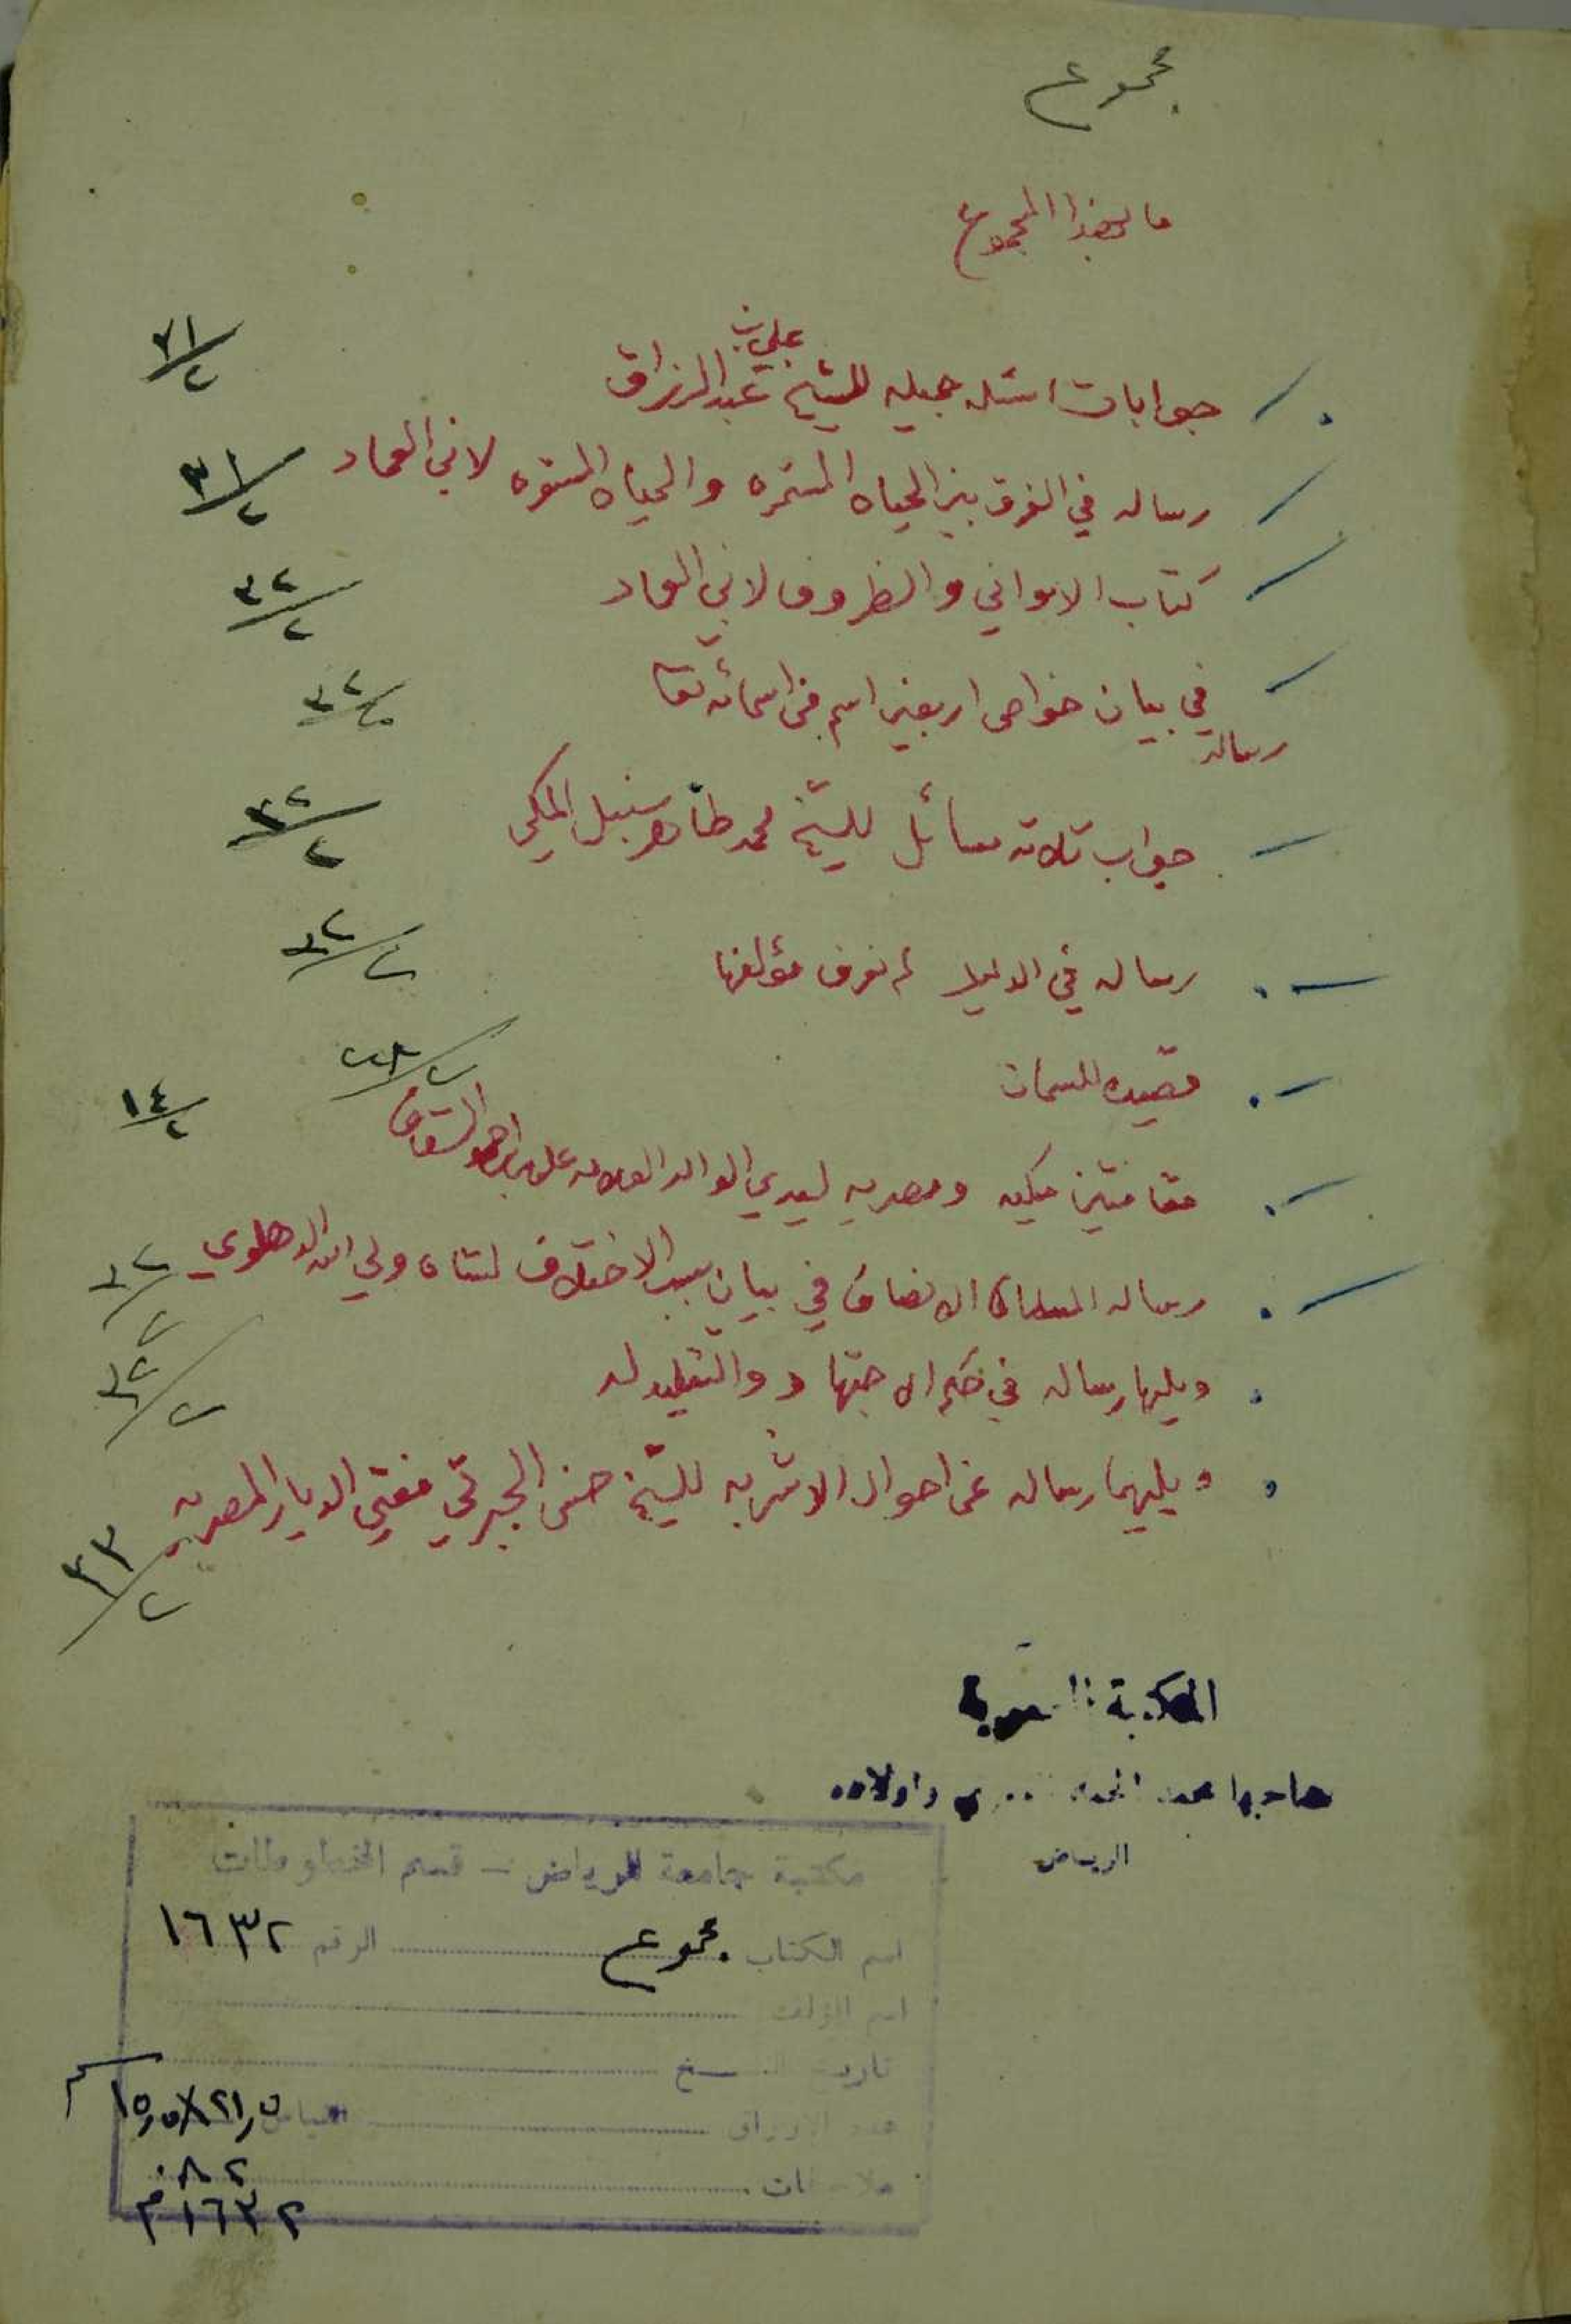 مجموع
ما بهذا المجموع
جوابات اسئله جميله للشيخ علي بن عبد الرزاق ٣١/٢
رساله في الفرق بين الحياه المستمره والحياه المستقره لابن العماد ٣١/٢
كتاب الاواني والظروف لابن العماد ٣٢/٢
رساله في بيان خواص اربعين اسم من اسمائه تعا ٣٢/٢
جواب ثلاثه مسائل للشيخ محمد طاهر سنبل المكي ٣٢/٢
رساله في لم نعرف مؤلفها ٣٢/٢
قصيده للسمان
مقامتين مكيه ومصريه لسيدي الوالد العلامه علوي بن احمد السقاف ١٤/٢
رساله المسماة الانصاف في بيان سبب الاختلاف لشاه ولي الله الدهلوي ٣٢/٢
ويليها رساله في حكم الاجتهاد والتقليد له ٣٢/٢
ويليهما رساله عن احوال الاشربه للشيخ حسن الجبرتي مفتي الديار المصريه ٣٣/٢
المكتبة
صاحبها محمد واولاده
الرياض
مكتبة جامعة الرياض - قسم المخطوطات
اسم الكتاب مجموع الرقم ١٦٣٢
اسم المؤلف
تاريخ النسخ
عدد الاوراق القياس ٢١,٥×١٥,٥ سم
ملاحظات
١٦٣٢ م